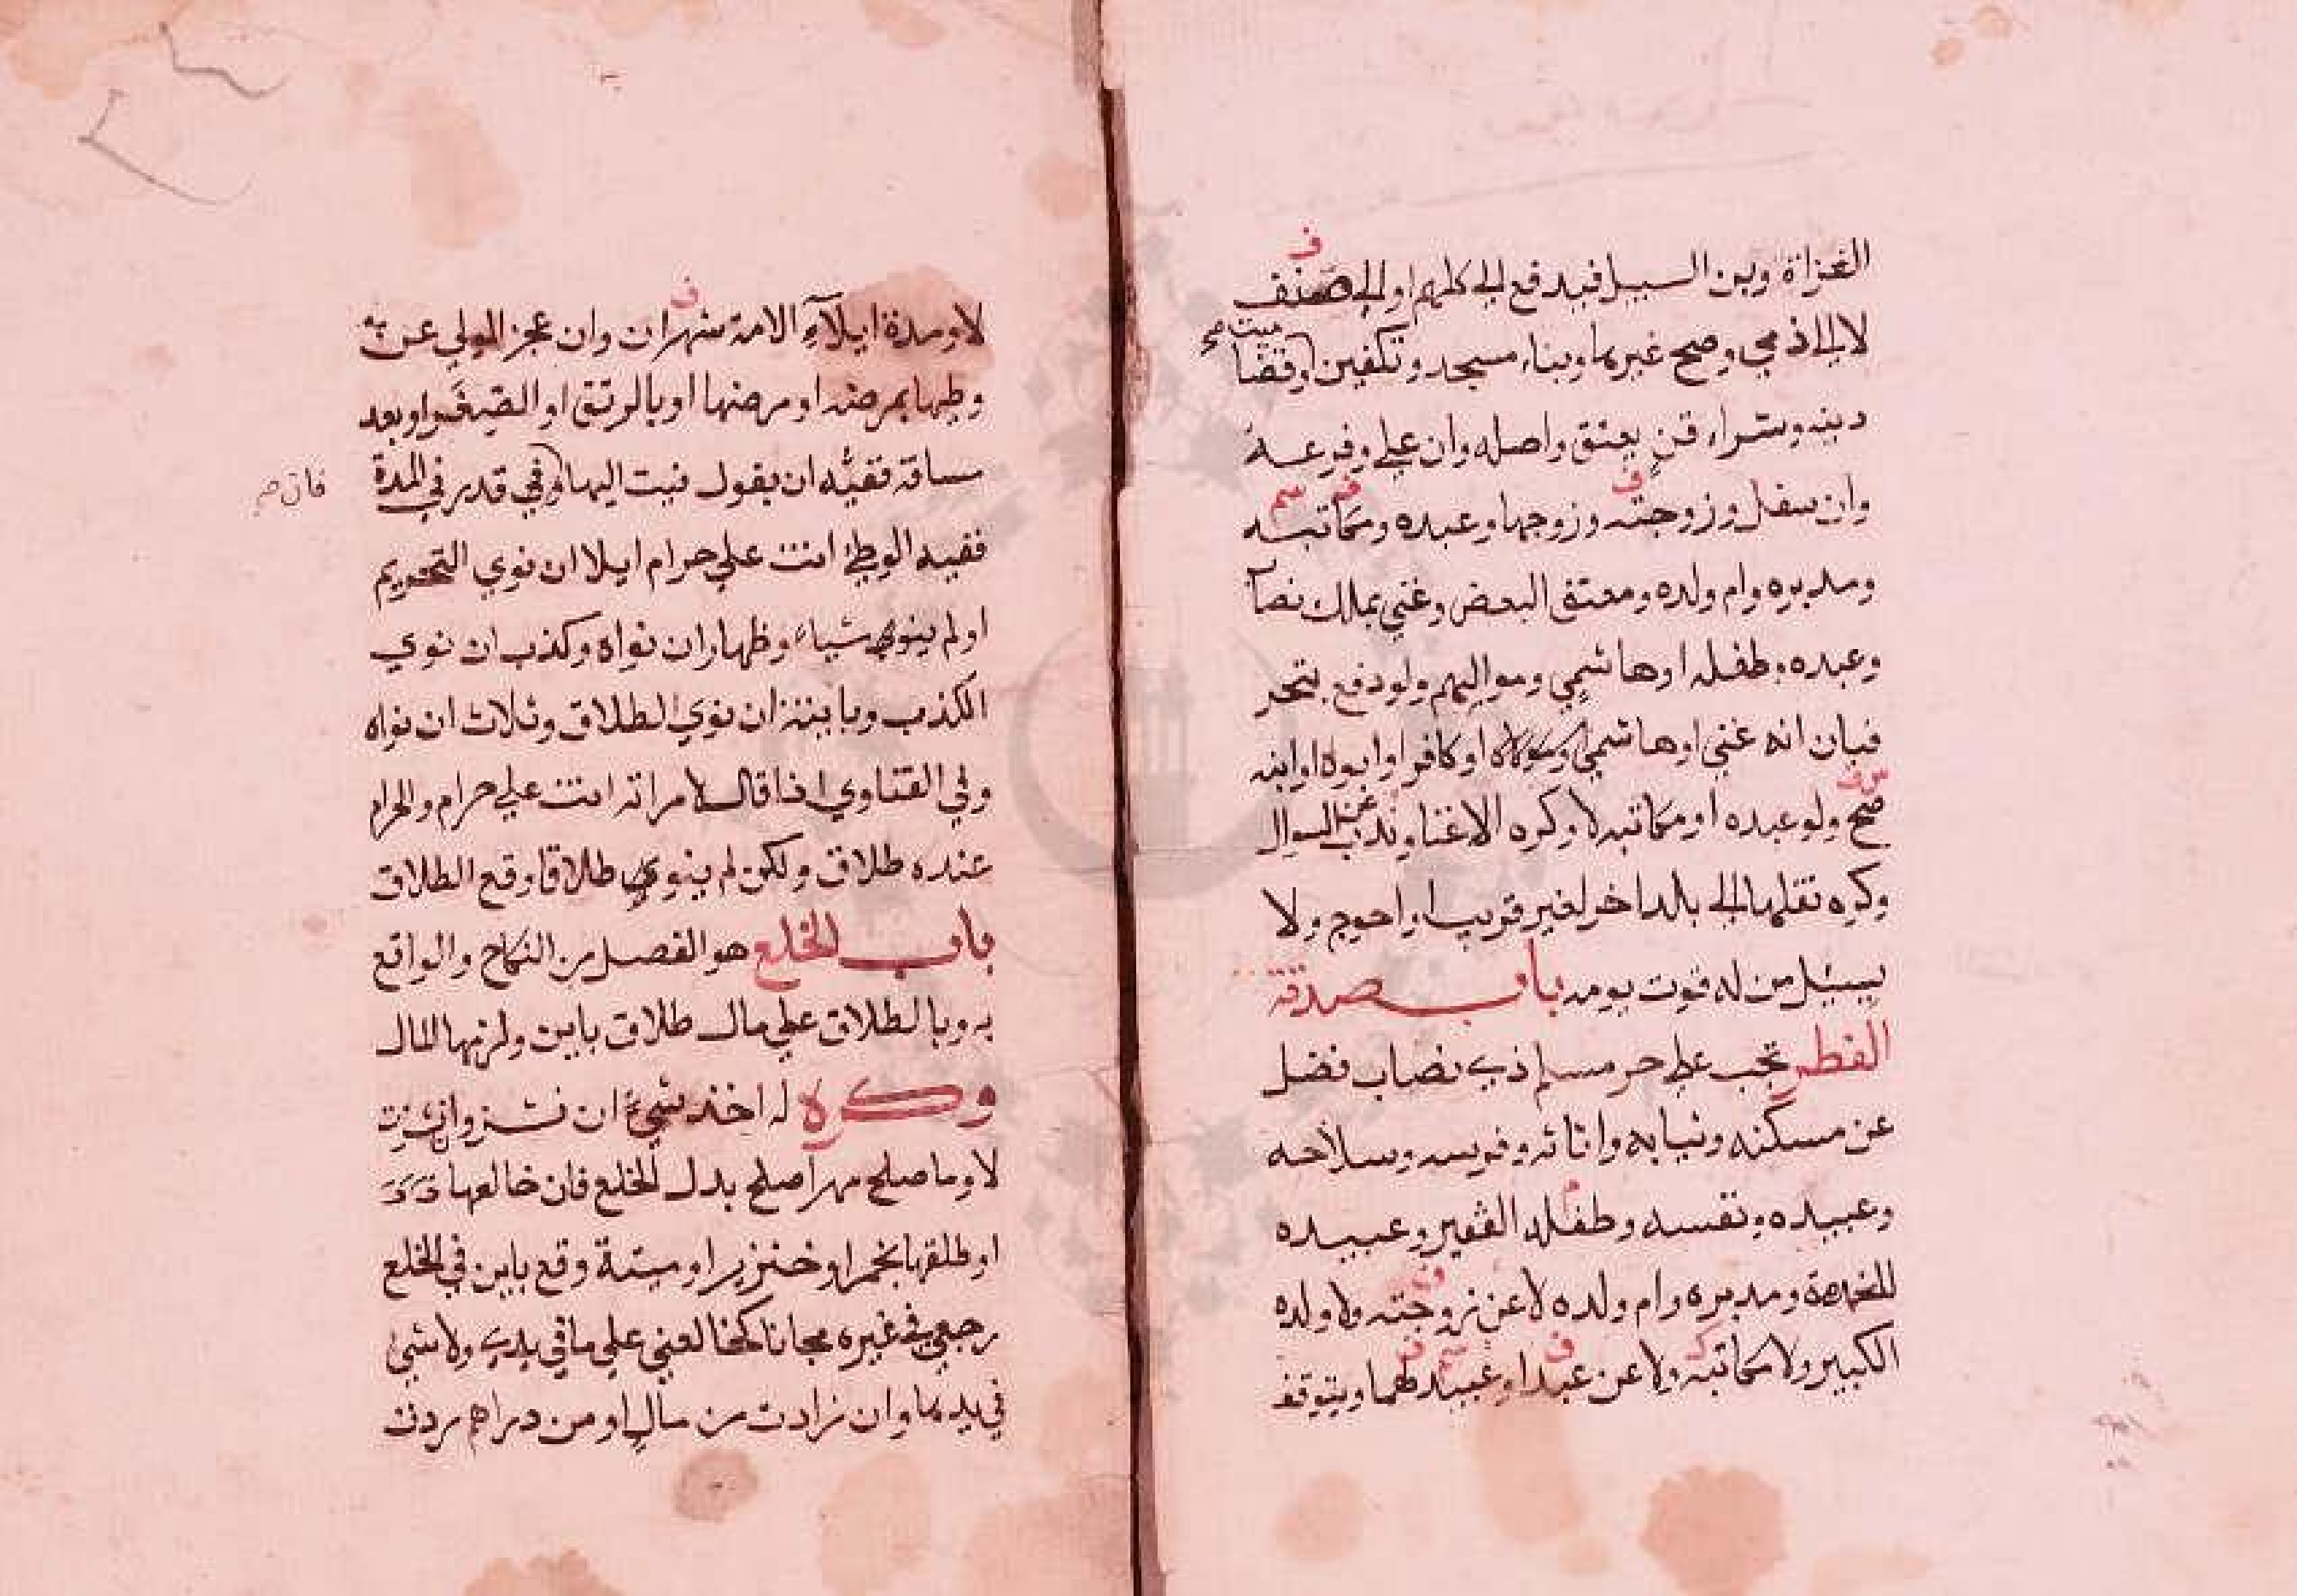 الغزاة وبن السبيل فيدفع الي كلهم او الي صنف
لا الي ذمي وصح غيرها وبناء مسجد وتكفين ميت صح وقضا
دينه وشراء قن يعتق واصله وان علي وفرعه
وان سفل وزوجته وزوجها وعبده ومكاتبه
ومدبره وام ولده ومعتق البعض وغني بملك نصا
وعبده وطفله او هاشمي ومواليهم ولو دفع بتحر
فبان انه غني او هاشمي او كافر او ابوه او ابنه
صح ولو عبده او مكاتبه لا وكره الاغنا وندب عن السوال
وكره نقلها الي بلد اخر لغير قريب او احوج ولا
يسئل من له قوت يومه باب صدقة
الفطر تجب علي حر مسلم ذي نصاب فضل
عن مسكنه وثيابه واثاثه وفرسه وسلاحه
وعبيده ونفسه وطفله الفقير وعبيده
للخدمة ومدبره وام ولده لا عن زوجته ولا ولده
الكبير ولا مكاتبه ولا عن عبد او عبيد لهما ويتوقف
لا ومدة ايلاء الامة شهران وان عجز المولي عن
وطيها بمرضه او مرضها او بالرتق او الصغر او بعد
مسافة ففيئه ان يقول فيت اليها وفي قدر في المدة
فان صح
ففيه الوطئ انت علي حرام ايلا ان نوي التحريم
او لم ينوي شياء وظهار ان نواه وكذب ان نوي
الكذب وباينة ان نوي الطلاق وثلاث ان نواه
وفي الفتاوي اذا قال لامراته انت علي حرام والحرام
عنده طلاق ولكن لم ينوي طلاقا وقع الطلاق
باب الخلع هو الفصل من النكاح والواقع
به وبالطلاق علي مال طلاق باين ولزمها المال
وكره له اخذ شيئ ان نشز وان نشزت
لا وما صلح مهرا صلح بدل الخلع فان خالعها
او طلقها بخمر او خنزير او ميتة وقع باين في الخلع
رجعي في غيره مجانا كخالعني علي ما في يدي ولا شئ
في يدها وان زادت من مال او من دراهم ردت